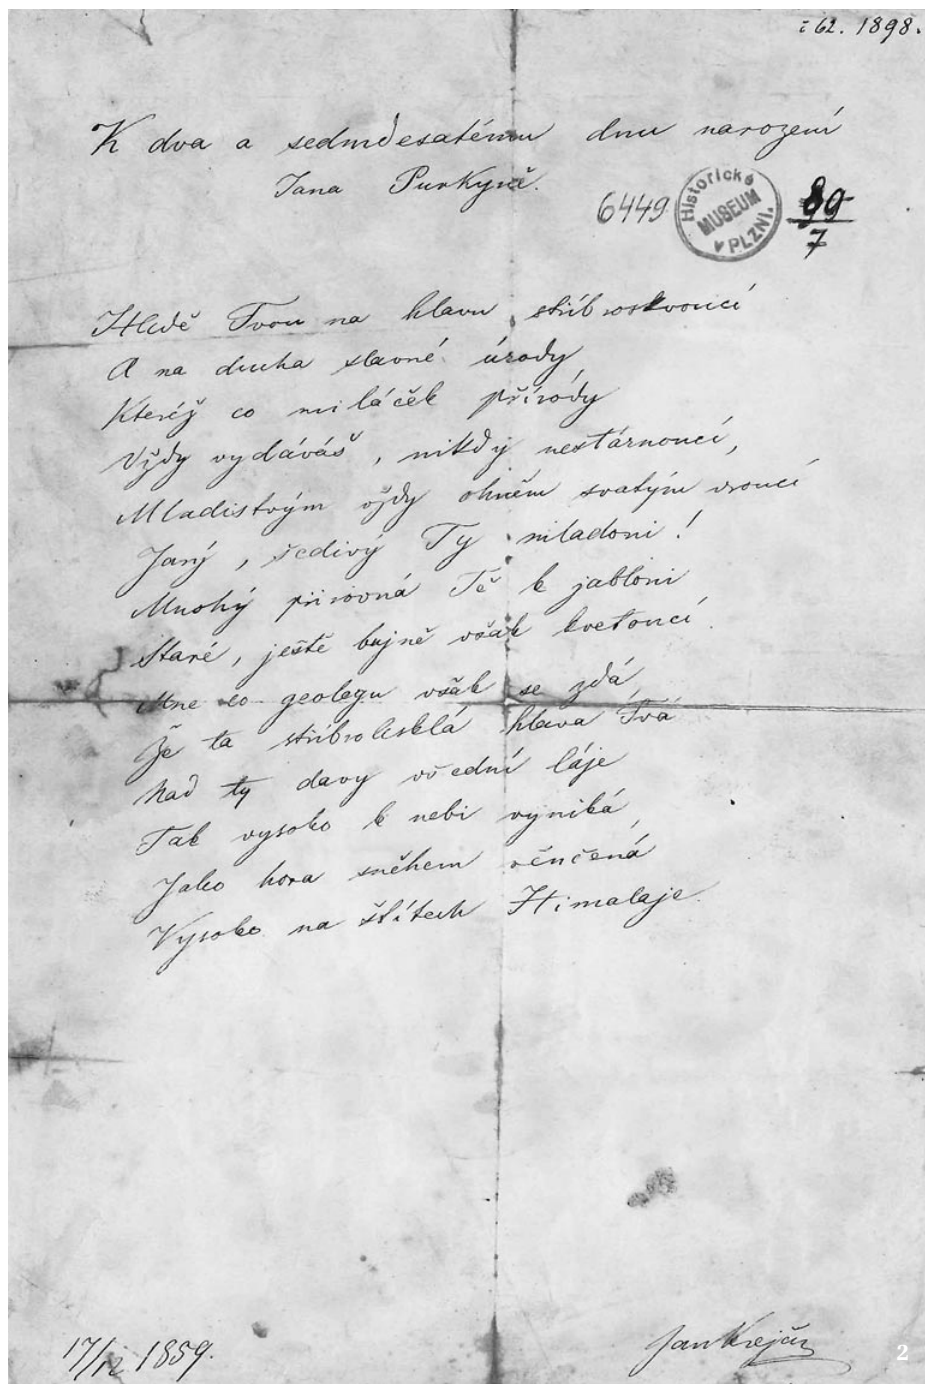 č 62. 1898.
K dva a sedmdesatému dnu narození
Jana Purkyně.
6449
Historické MUSEUM v PLZNI.
90
7
Hledě Tvou na hlavu stříbroskvoucí
A na ducha slavné úrody
Kteréž co miláček přírody
Vždy vydáváš, nikdy nestárnoucí,
Mladistvým vždy ohněm svatým vroucí
Jarý, šedivý Ty mladoni!
Mnohý přirovná Tě k jabloni
Staré, ještě bujně však kvetoucí.
Mne co geologu však se zdá
Že ta stříbrolesklá hlava Tvá
Nad ty davy všední láje
Tak vysoko k nebi vyniká,
Jako hora sněhem věnčená
Vysoko na štítech Himalaje.
17/12 1859.
Jan Krejčí
2